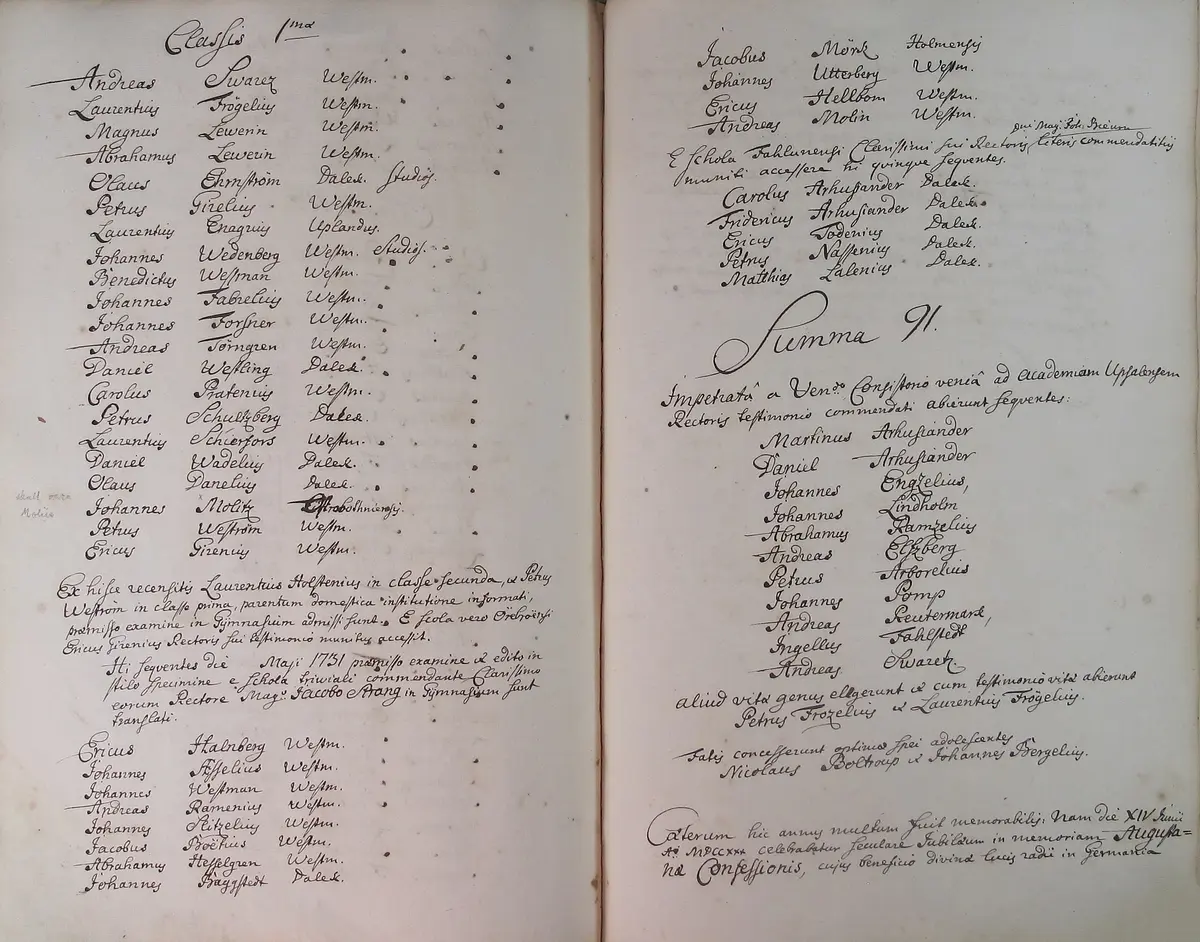 Classis 1mæ
Andreas Swarez Westm.
Laurentius Frögelius Westm.
Magnus Lewerin Westm.
Abrahamus Lewerin Westm.
Olaus Ehrnström Dalek. Studios.
Petrus Girelius Westm.
Laurentius Enagrius Uplandus.
Johannes Wedenberg Westm. Studios.
Benedictus Westman Westm.
Johannes Fabrelius Westm.
Johannes Forssner Westm.
Andreas Törngren Westm.
Daniel Westling Dalek.
Carolus Pratenius Westm.
Petrus Schultzberg Dalek.
Laurentius Schierfors Westm.
Daniel Wadelius Dalek.
Olaus Danelius Dalek.
skall vara
Molitz
Johannes Molitz Ostrobothniensis.
Petrus Weström Westm.
Ericus Girenius Westm.
Ex hisce recensitis Laurentius Holstenius in classe secunda, & Petrus
Weström in classe prima, parentum domestica institutione informati,
præmisso examine in Gymnasium admissi sunt. E scola vero Örebroënsi
Ericus Girenius Rectoris sui testimonio munitus accessit.
Hi seqventes die Maji 1731 præmisso examine & edito in
stilo specimine e schola triviali commendante Clarissimo
eorum Rectore Mag: Jacobo Strang in Gymnasium sunt
translati.
Ericus Halnberg Westm.
Johannes Asselius Westm.
Johannes Westman Westm.
Andreas Ramenius Westm.
Johannes Stitzelius Westm.
Jacobus Boëthius Westm.
Abrahamus Hesselgren Westm.
Johannes Häggstedt Dalek.
Jacobus Mörk Holmensis
Johannes Utterberg Westm.
Ericus Hellbom Westm.
Andreas Molin Westm.
E schola Fahlunensi Clarissimi sui Rectoris literis commendatitiis
muniti accessere hi qvinqve seqventes.
Carolus Arhusiander Dalek.
Fridericus Arhusiander Dalek.
Ericus Todenius Dalek.
Petrus Nassenius Dalek.
Matthias Lalenius Dalek.
Summa 91.
Impetratâ a Ven:do Consistorio veniâ ad Academiam Upsalensem
Rectoris testimonio commendati abierunt seqventes:
Martinus Arhusiander
Daniel Arhusiander
Johannes Engzelius,
Johannes Lindholm
Abrahamus Ramzelius
Andreas Elfzberg
Petrus Arborelius
Johannes Pomp
Andreas Reutermark,
Ingellus Fahlstedt
Andreas Swaretz
aliud vitæ genus elegerunt & cum testimonio vitæ abierunt
Petrus Frozelius & Laurentius Frögelius.
Fatis concesserunt optimæ spei adolescentes
Nicolaus Boltroup & Johannes Bergelius.
Cæterum hic annus multum fuit memorabilis. Nam die XIV Junii
Aº MDCCXXX celebrabatur seculare Jubilæum in memoriam Augusta=
næ Confessionis, cujus beneficio divinæ lucis radii in Germania